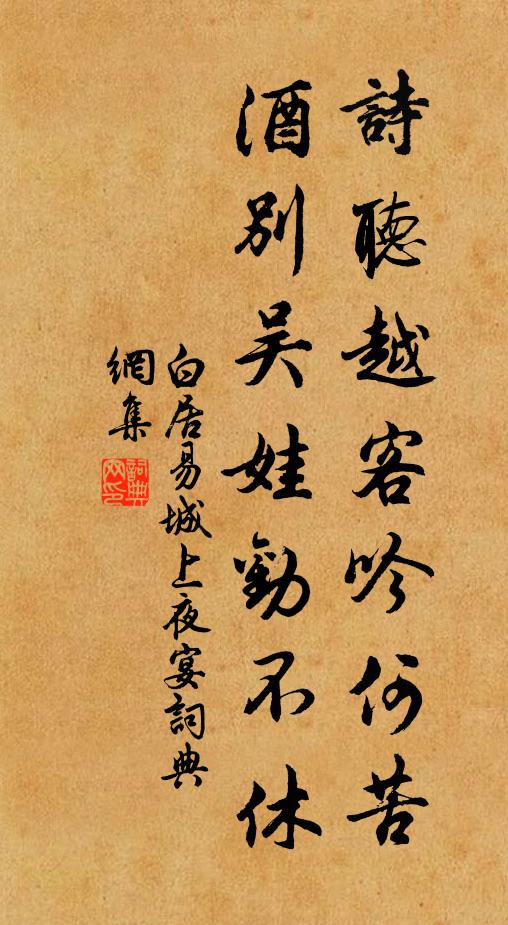 詩聽越客吟何苦
酒別吴娃勸不休
白居易城上夜宴詞典
網集
詞典
网印